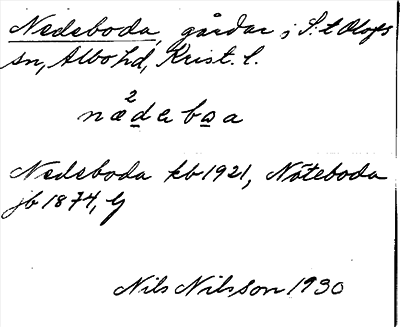 Nedeboda, gårdar i S:t Olofs
sn, Albo hd, Krist. l.
2
nædebọa
Nedeboda kb 1921, Nöteboda
jb 1874, G
Nils Nilsson 1930